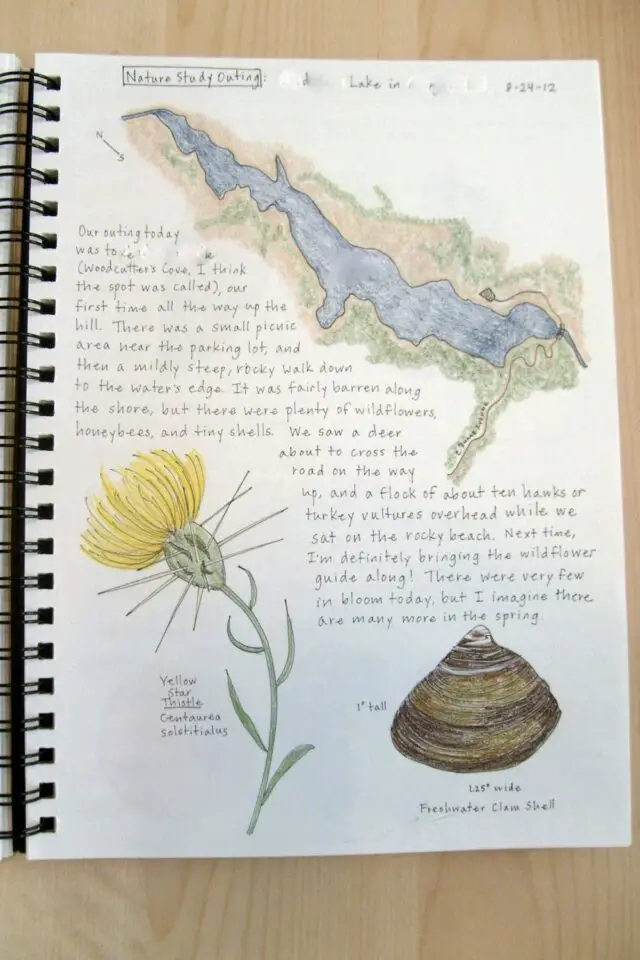 Nature Study Outing: Lake in 8-24-12
N
S
Our outing today
was to
(Woodcutter's Cove, I think
the spot was called), our
first time all the way up the
hill. There was a small picnic
area near the parking lot, and
then a mildly steep, rocky walk down
to the water's edge. It was fairly barren along
the shore, but there were plenty of wildflowers,
honeybees, and tiny shells. We saw a deer
about to cross the
road on the way
up, and a flock of about ten hawks or
turkey vultures overhead while we
sat on the rocky beach. Next time,
I'm definitely bringing the wildflower
guide along! There were very few
in bloom today, but I imagine there
are many more in the spring.
Yellow
Star
Thistle
Centaurea
solstitialus
1" tall
1.25" wide
Freshwater Clam Shell